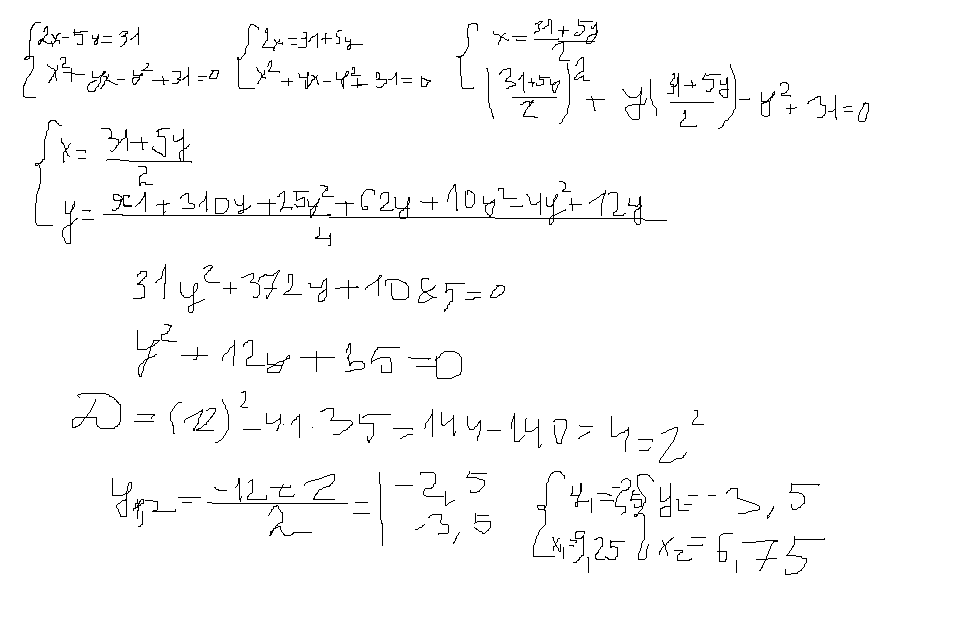 {2x-5y=31 {2x=31+5y { x=(31+5y)/2
{x²+yx-y²+31=0 {x²+yx-y²+31=0 { ((31+5y)/2)²+y((31+5y)/2)-y²+31=0
{x=(31+5y)/2
{y=(961+310y+25y²+62y+10y²-4y²+12y)/4
31y²+372y+1085=0
y²+12y+35=0
D=(12)²-41·35=144-140=4=2²
y₁,₂=(-12±2)/2=| -2,5 {y₁=-2,5 {y₂=-3,5
-3,5 {x₁=9,25 {x₂=6,75